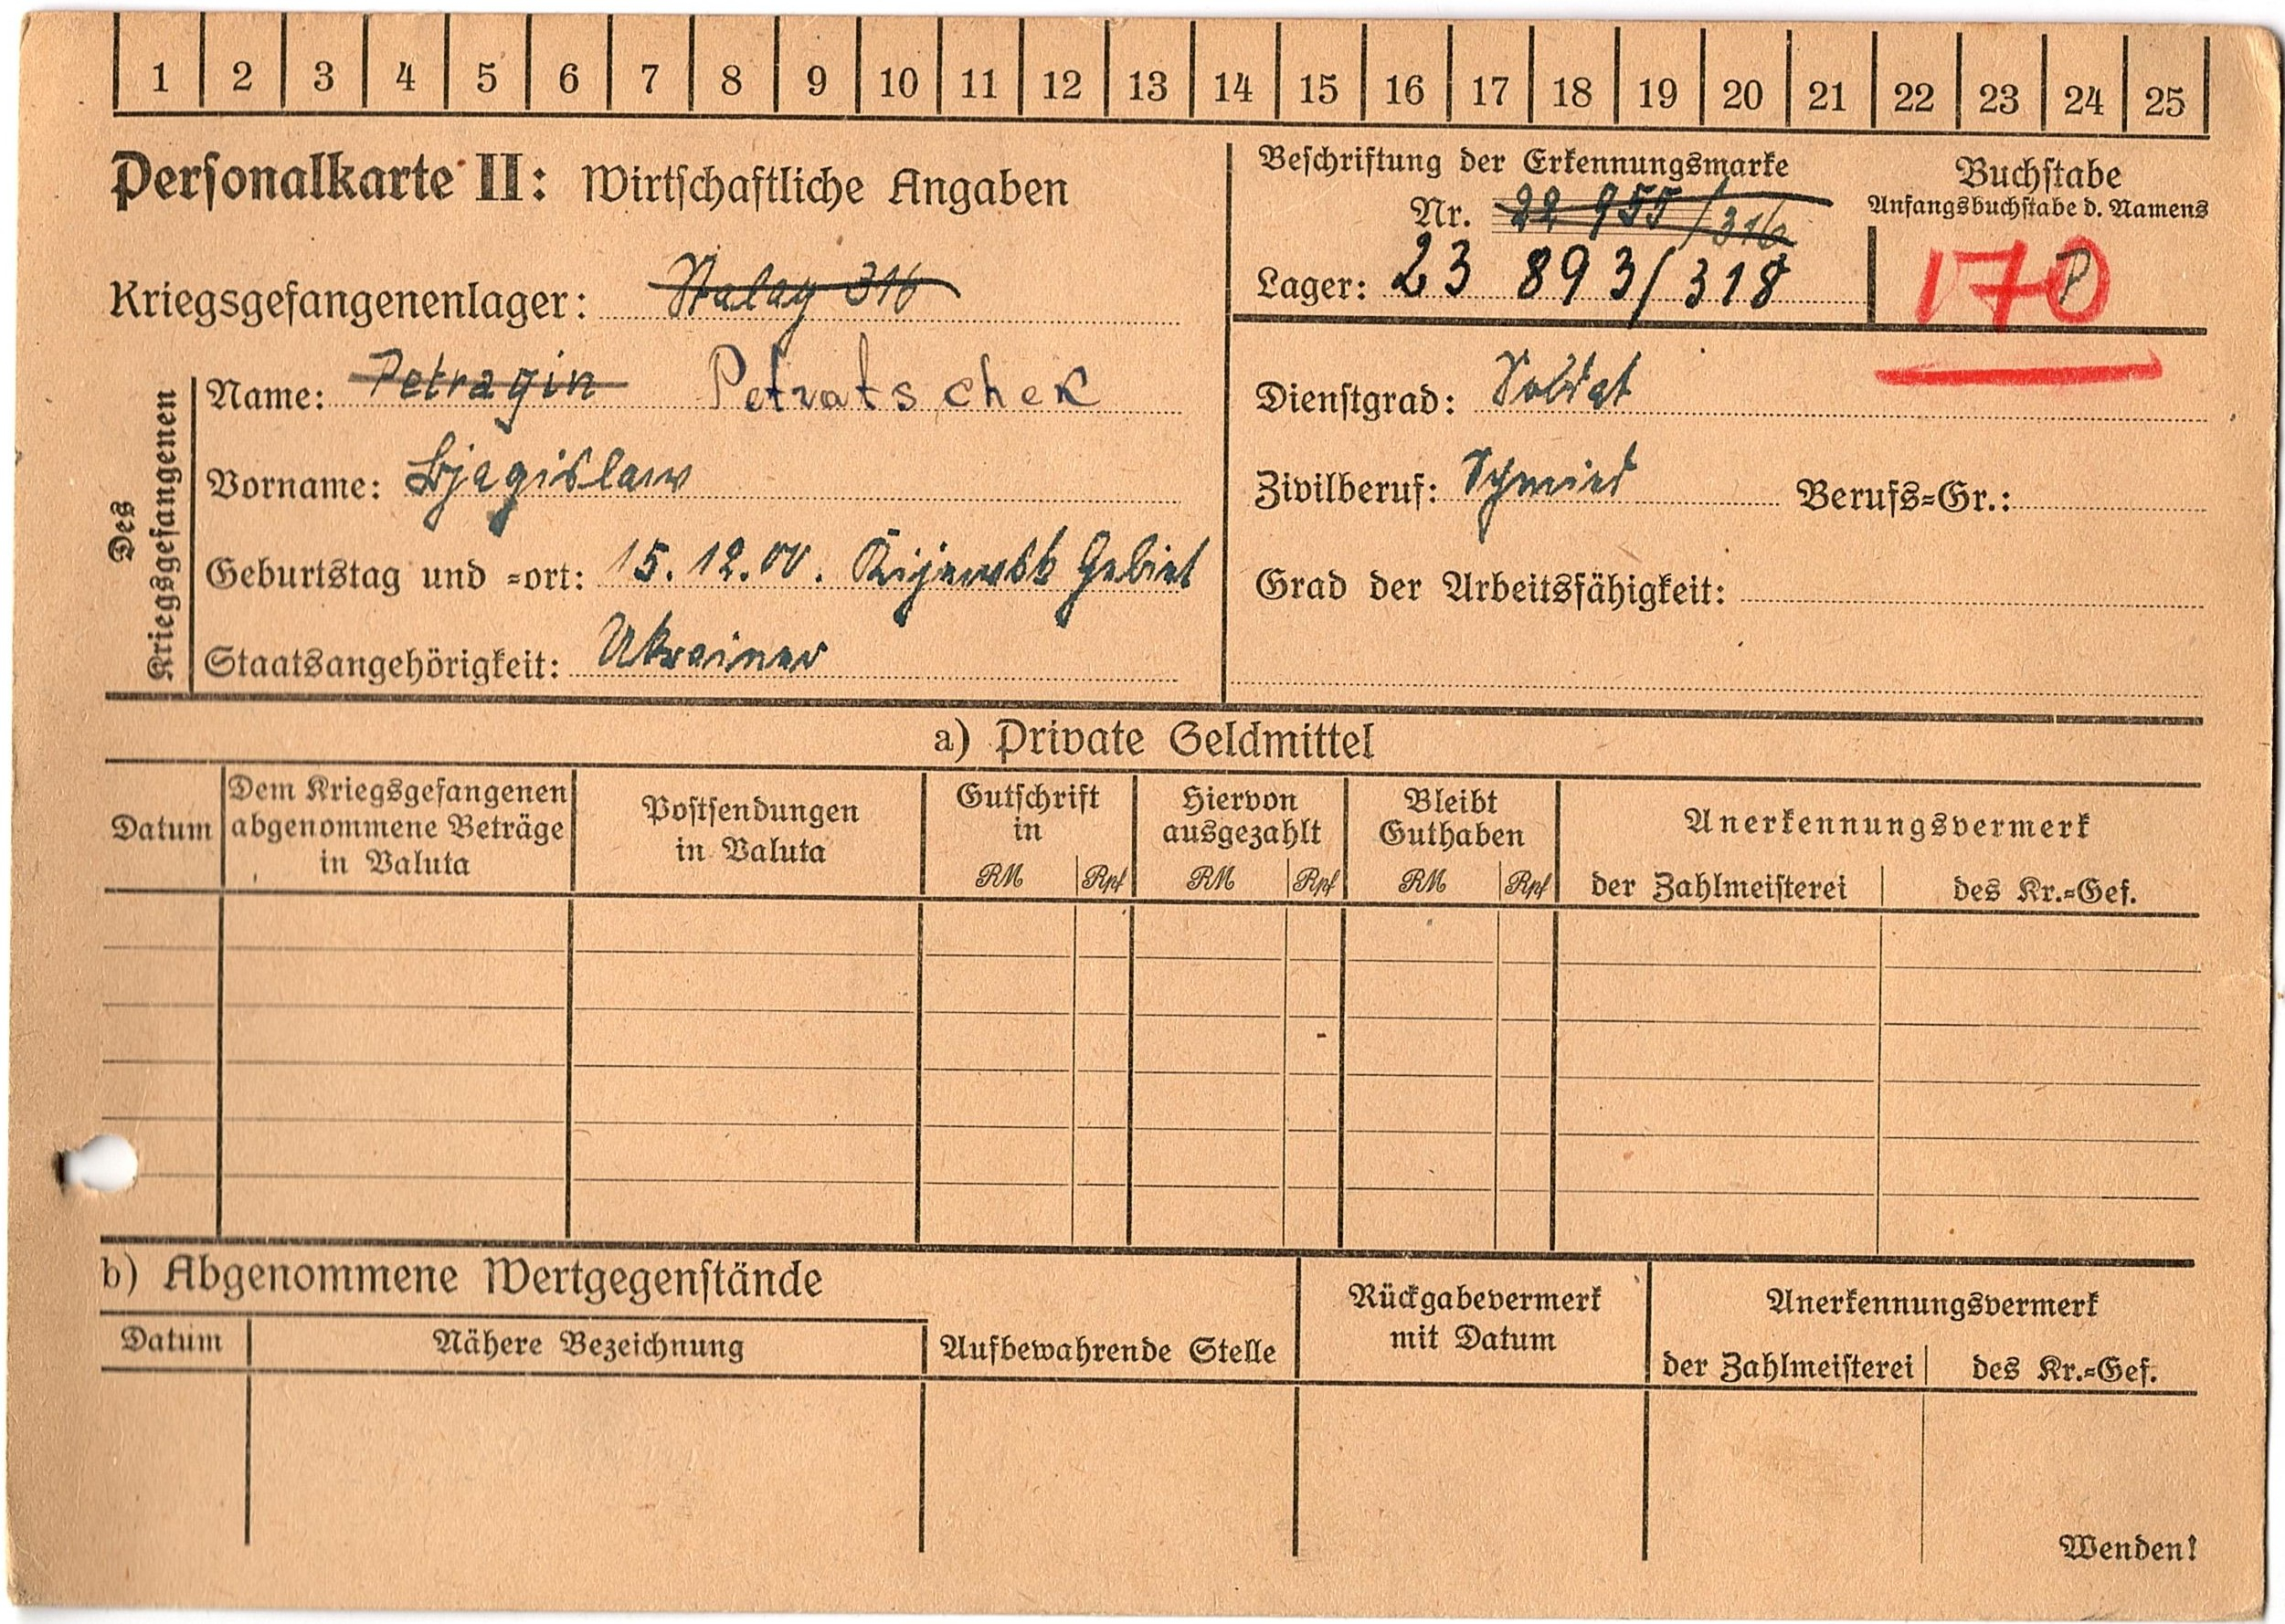 1 2 3 4 5 6 7 8 9 10 11 12 13 14 15 16 17 18 19 20 21 22 23 24 25
Personalkarte II: Wirtschaftliche Angaben
Kriegsgefangenenlager: Stalag 316
Des Kriegsgefangenen
Name: Petragin Petratschek
Vorname: Bjagislaw
Geburtstag und =ort: 15. 12. 00. Kijewsk Gebiet
Staatsangehörigkeit: Ukrainer
Beschriftung der Erkennungsmarke
Nr. 22 955/316
Lager: 23 893/318
Buchstabe
Anfangsbuchstabe d. Namens
P
170
Dienstgrad: Soldat
Zivilberuf: Schmied Berufs=Gr.:
Grad der Arbeitsfähigkeit:
a) Private Geldmittel
Datum
Dem Kriegsgefangenen
abgenommene Beträge
in Valuta
Postsendungen
in Valuta
Gutschrift
in
RM Rpf
Hiervon
ausgezahlt
RM Rpf
Bleibt
Guthaben
RM Rpf
Anerkennungsvermerk
der Zahlmeisterei des Kr.=Gef.
b) Abgenommene Wertgegenstände
Datum Nähere Bezeichnung
Aufbewahrende Stelle
Rückgabevermerk
mit Datum
Anerkennungsvermerk
der Zahlmeisterei des Kr.=Gef.
Wenden!